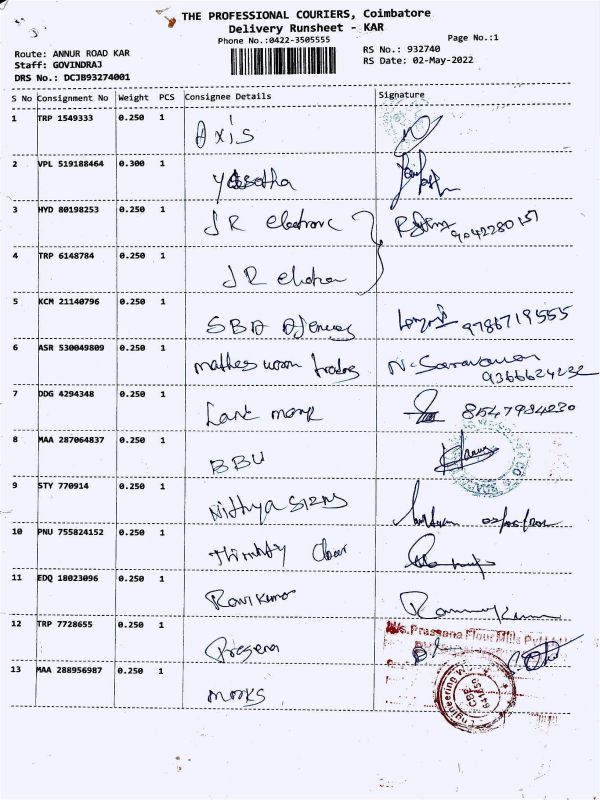 THE PROFESSIONAL COURIERS, Coimbatore
Delivery Runsheet - KAR
Phone No.:0422-3505555
Page No.:1
Route: ANNUR ROAD KAR
Staff: GOVINDRAJ
DRS No.: DCJB93274001
RS No.: 932740
RS Date: 02-May-2022
S No Consignment No Weight PCS Consignee Details Signature
1 TRP 1549333 0.250 1 Axis
2 VPL 519188464 0.300 1
3 HYD 80198253 0.250 1 JR electronic 9042280151
4 TRP 6148784 0.250 1 JR
5 KCM 21140796 0.250 1 SBA Agencies 9786719555
6 ASR 530049809 0.250 1 traders N. Saravanan
9366624232
7 DDG 4294348 0.250 1 Lark 8547984230
8 MAA 287064837 0.250 1 BBU
9 STY 770914 0.250 1 Nithya signs
10 PNU 755824152 0.250 1
11 EDQ 18023096 0.250 1 Ravikumar
12 TRP 7728655 0.250 1 Prasena
M/s.Prassana Flour Mills Pvt Ltd
13 MAA 288956987 0.250 1 marks
Engineering
CBE